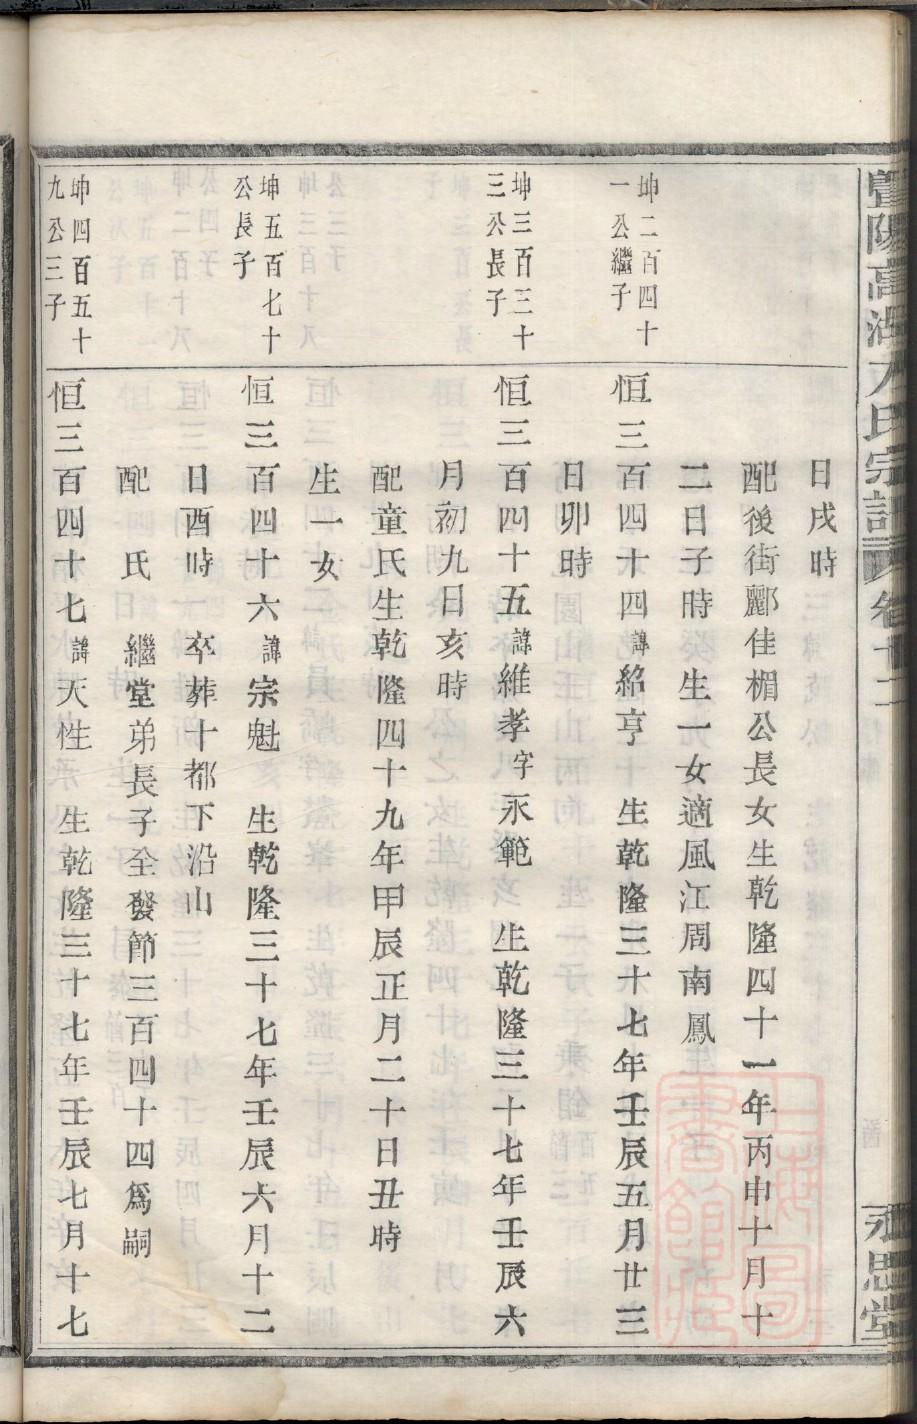 暨陽高湖方氏宗譜 卷十二 永思堂
日戌時
配後街酈佳楣公長女生乾隆四十一年丙申十月十
二日子時 生一女適風江周南鳳
坤二百四十
一公繼子
恒三百四十四諱紹亨 生乾隆三十七年壬辰五月廿三
日卯時
坤三百三十
三公長子
恒三百四十五諱維孝字永範 生乾隆三十七年壬辰六
月初九日亥時
配童氏生乾隆四十九年甲辰正月二十日丑時
生一女
坤五百七十
公長子
恒三百四十六諱宗魁 生乾隆三十七年壬辰六月十二
日酉時 卒葬十都下沿山
配 氏 繼堂弟長子全發節三百四十四爲嗣
坤四百五十
九公三子
恒三百四十七諱天性 生乾隆三十七年壬辰七月十七